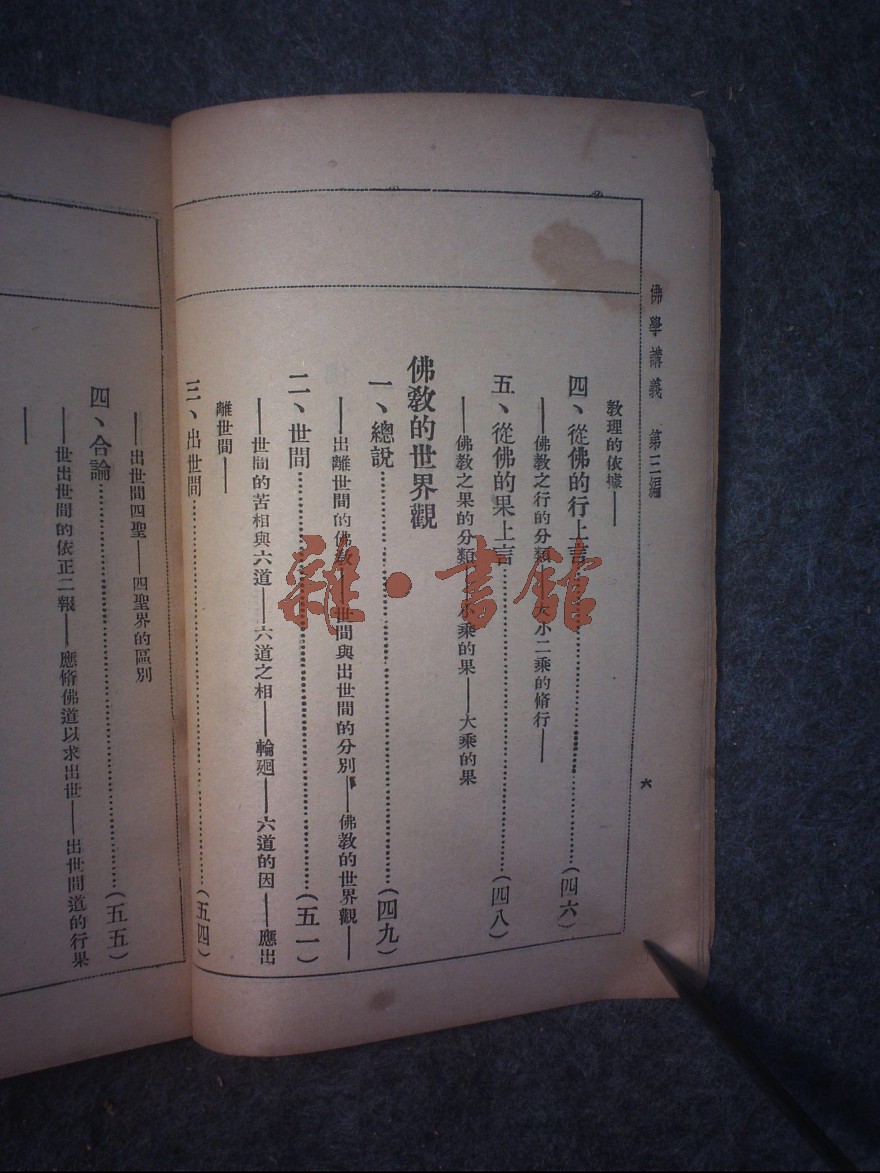 佛學講義 第三編
六
教理的依據——
四、從佛的行上言……(四六)
——佛教之行的分類——大小二乘的脩行——
五、從佛的果上言……(四八)
——佛教之果的分類——小乘的果——大乘的果
佛教的世界觀
一、總說……(四九)
——出離世間的佛教——世間與出世間的分別——佛教的世界觀——
二、世間……(五一)
——世間的苦相與六道——六道之相——輪廻——六道的因——應出
離世間——
三、出世間……(五四)
——出世間四聖——四聖界的區別
四、合論……(五五)
——世出世間的依正二報——應脩佛道以求出世——出世間道的行果
——
雜·書館